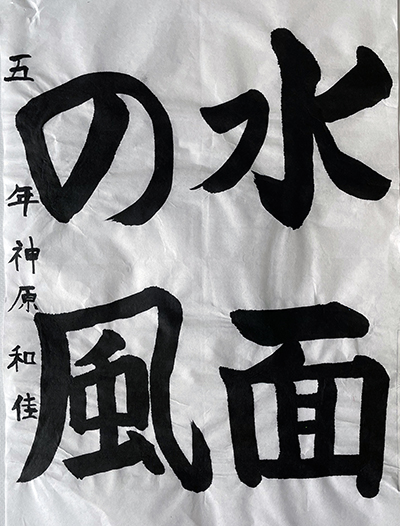 水面
の風
五年神原和佳